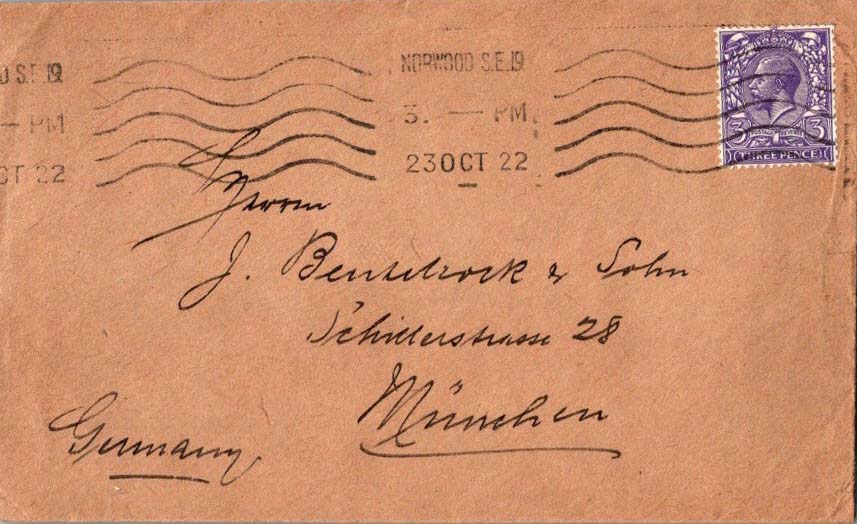 D S.E.19.
NORWOOD S.E.19.
— PM
3. — PM
OCT 22
23 OCT 22
3 POSTAGE REVENUE 3
THREE PENCE
Herren
J. & Sohn
Schillerstrasse 28
München
Germany